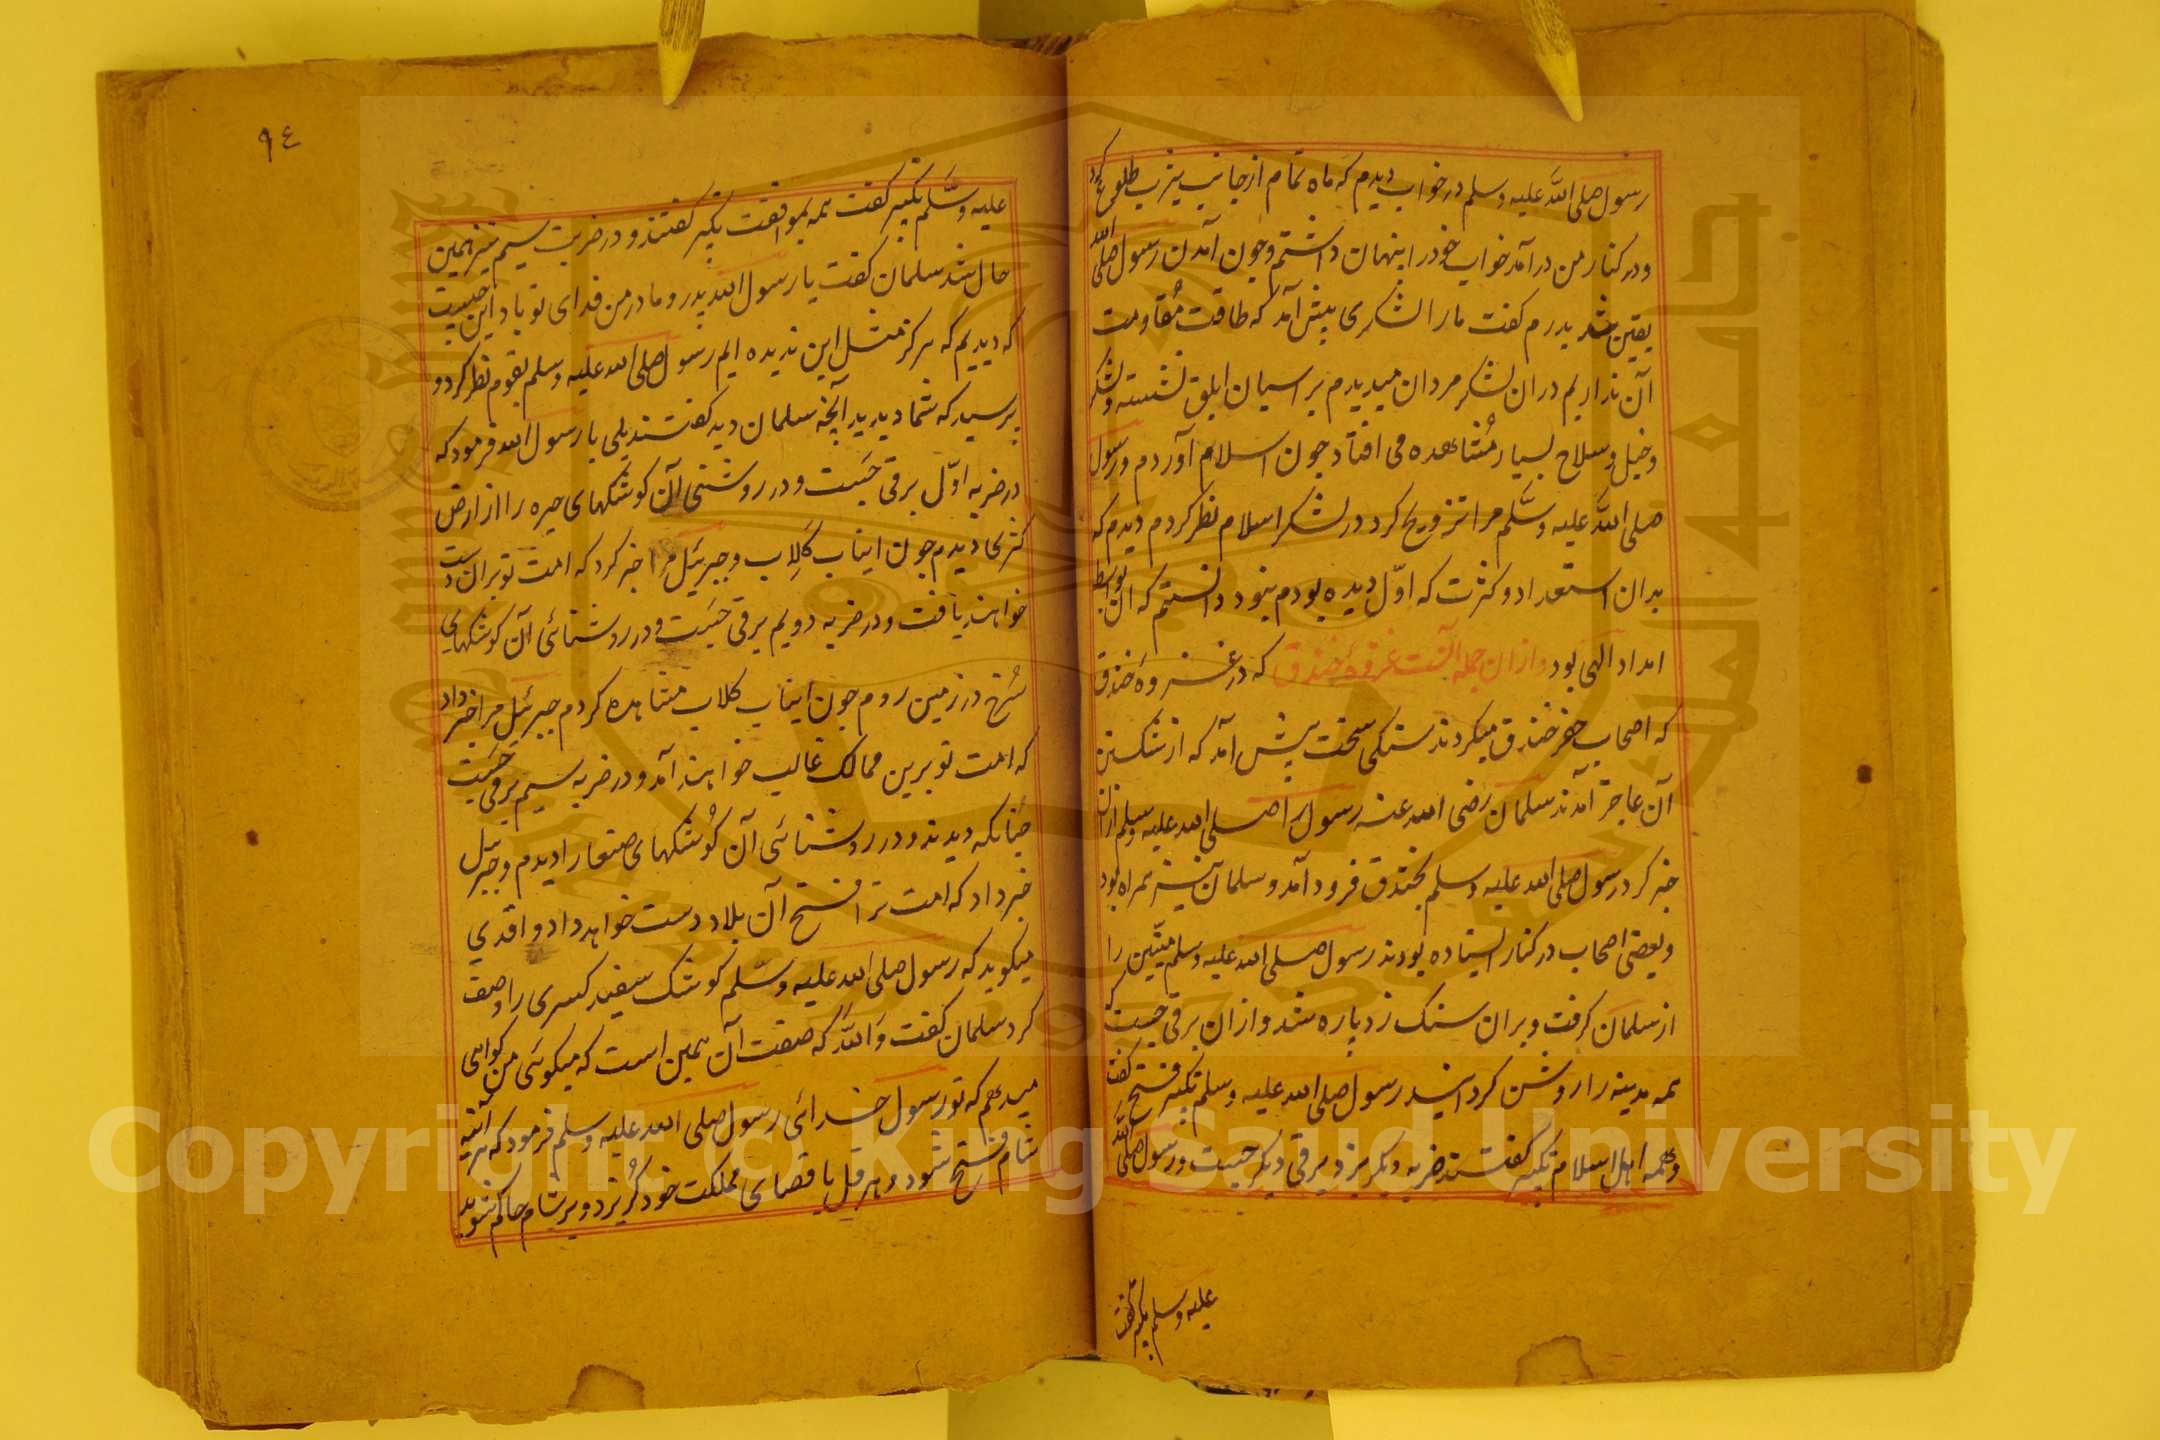 رسول صلی الله علیه وسلم در خواب دیدم که ماه تمام از جانب یثرب طلوع کرد
و در کنار من درآمد خواب خود را پنهان داشتم و چون آمدن رسول صلی الله
یقین شد پدرم کفت ما را لشکری پیش آمد که طاقت مقاومت
آن نداریم در ان لشکر مردان میدیدم بر اسپان ابلق نشسته و لشکر
و خیل و سلاح بسیار مشاهده می افتاد چون اسلام آوردم و رسول
صلی الله علیه وسلم مرا تزویج کرد در لشکر اسلام نظر کردم دیدم که
بدان استعداد و کثرت که اول دیده بودم نبود دانستم که ان بواسطه
امداد الهی بود و ازان جمله آنست غزوهٔ خندق که در غزوهٔ خندق
که اصحاب حفر خندق میکردند سنکی سخت پیش آمد که از شکستن
آن عاجز آمدند سلمان رضی الله عنه رسول را صلی الله علیه وسلم ازان
خبر کرد رسول صلی الله علیه وسلم بخندق فرود آمد و سلمان نیز همراه بود
و بعضی اصحاب در کنار ایستاده بودند رسول صلی الله علیه وسلم میتین را
از سلمان کرفت و بران سنک زد پاره شد و ازان برقی جست که
همه مدینه را روشن کردانید رسول صلی الله علیه وسلم تکبیر فتح کفت
و همه اهل اسلام تکبیر کفتند ضربه دیکر بزد برقی دیکر جست و رسول صلی الله
علیه وسلم تکبیر کفت
٩٤
علیه وسلم تکبیر کفت همه بموافقت تکبیر کفتند و در ضربت سیم نیز همین
حال شد سلمان کفت یا رسول الله پدر و مادر من فدای تو باد این چیست
که دیدیم که هرکز مثل این ندیده ایم رسول صلی الله علیه وسلم بقوم نظر کرد و
پرسید که شما دیدید آنچه سلمان دید کفتند بلی یا رسول الله فرمود که
در ضربه اول برقی جست و در روشنی آن کوشکهای حیره را از ارض
کسری دیدم چون انیاب کلاب و جبرئیل مرا خبر کرد که امت تو بران دست
خواهند یافت و در ضربه دویم برقی جست و در روشنائی آن کوشکهای
سرخ در زمین روم چون انیاب کلاب مشاهده کردم جبرئیل مرا خبر داد
که امت تو برین ممالک غالب خواهند آمد و در ضربه سیم برقی جست
چنانکه دیدند و در روشنائی آن کوشکهای صنعا را دیدم و جبرئیل
خبر داد که امت ترا فتح آن بلاد دست خواهد داد واقدی
میکوید که رسول صلی الله علیه وسلم کوشک سفید کسری را وصف
کرد سلمان کفت والله که صفت آن همین است که میکوئی من کواهی
میدهم که تو رسول خدائی رسول صلی الله علیه وسلم فرمود که هر آئینه
شام فتح شود و هرقل باقصای مملکت خود کریزد و بر شام حاکم شوید
Copyright © King Saud University